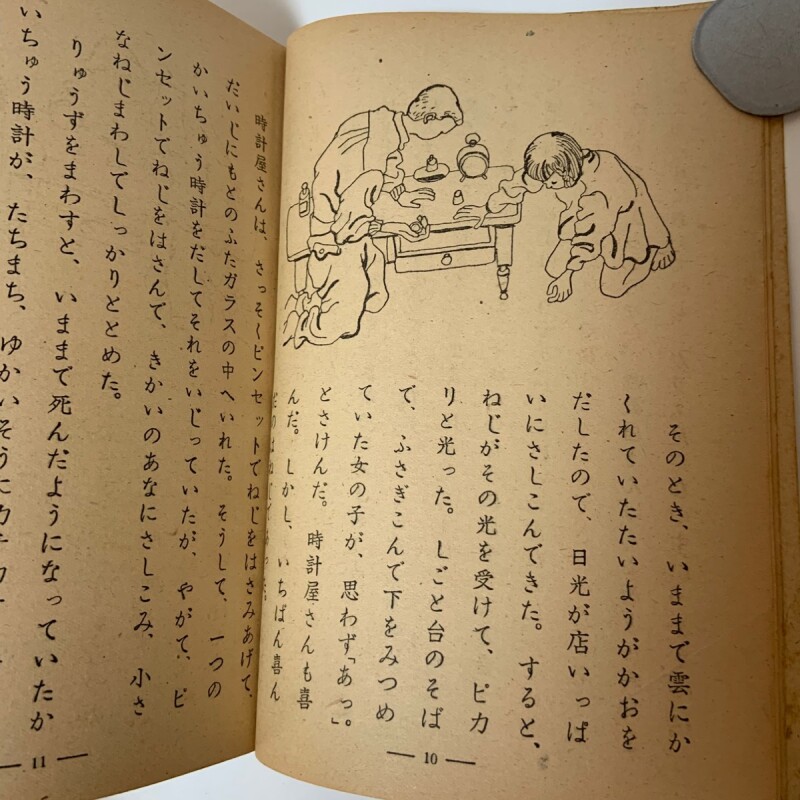 そのとき、いままで雲にか
くれていたたいようがかおを
だしたので、日光が店いっぱ
いにさしこんできた。すると、
ねじがその光を受けて、ピカ
リと光った。しごと台のそば
で、ふさぎこんで下をみつめ
ていた女の子が、思わず「あっ」。
とさけんだ。時計屋さんも喜
んだ。しかし、いちばん喜ん
だのはねじであった。
10
時計屋さんは、さっそくピンセットでねじをはさみあげて、
だいじにもとのふたガラスの中へいれた。そうして、一つの
かいちゅう時計をだしてそれをいじっていたが、やがて、ピ
ンセットでねじをはさんで、きかいのあなにさしこみ、小さ
なねじまわしでしっかりととめた。
りゅうずをまわすと、いままで死んだようになっていたか
いちゅう時計が、たちまち、ゆかいそうにカチカチ
11